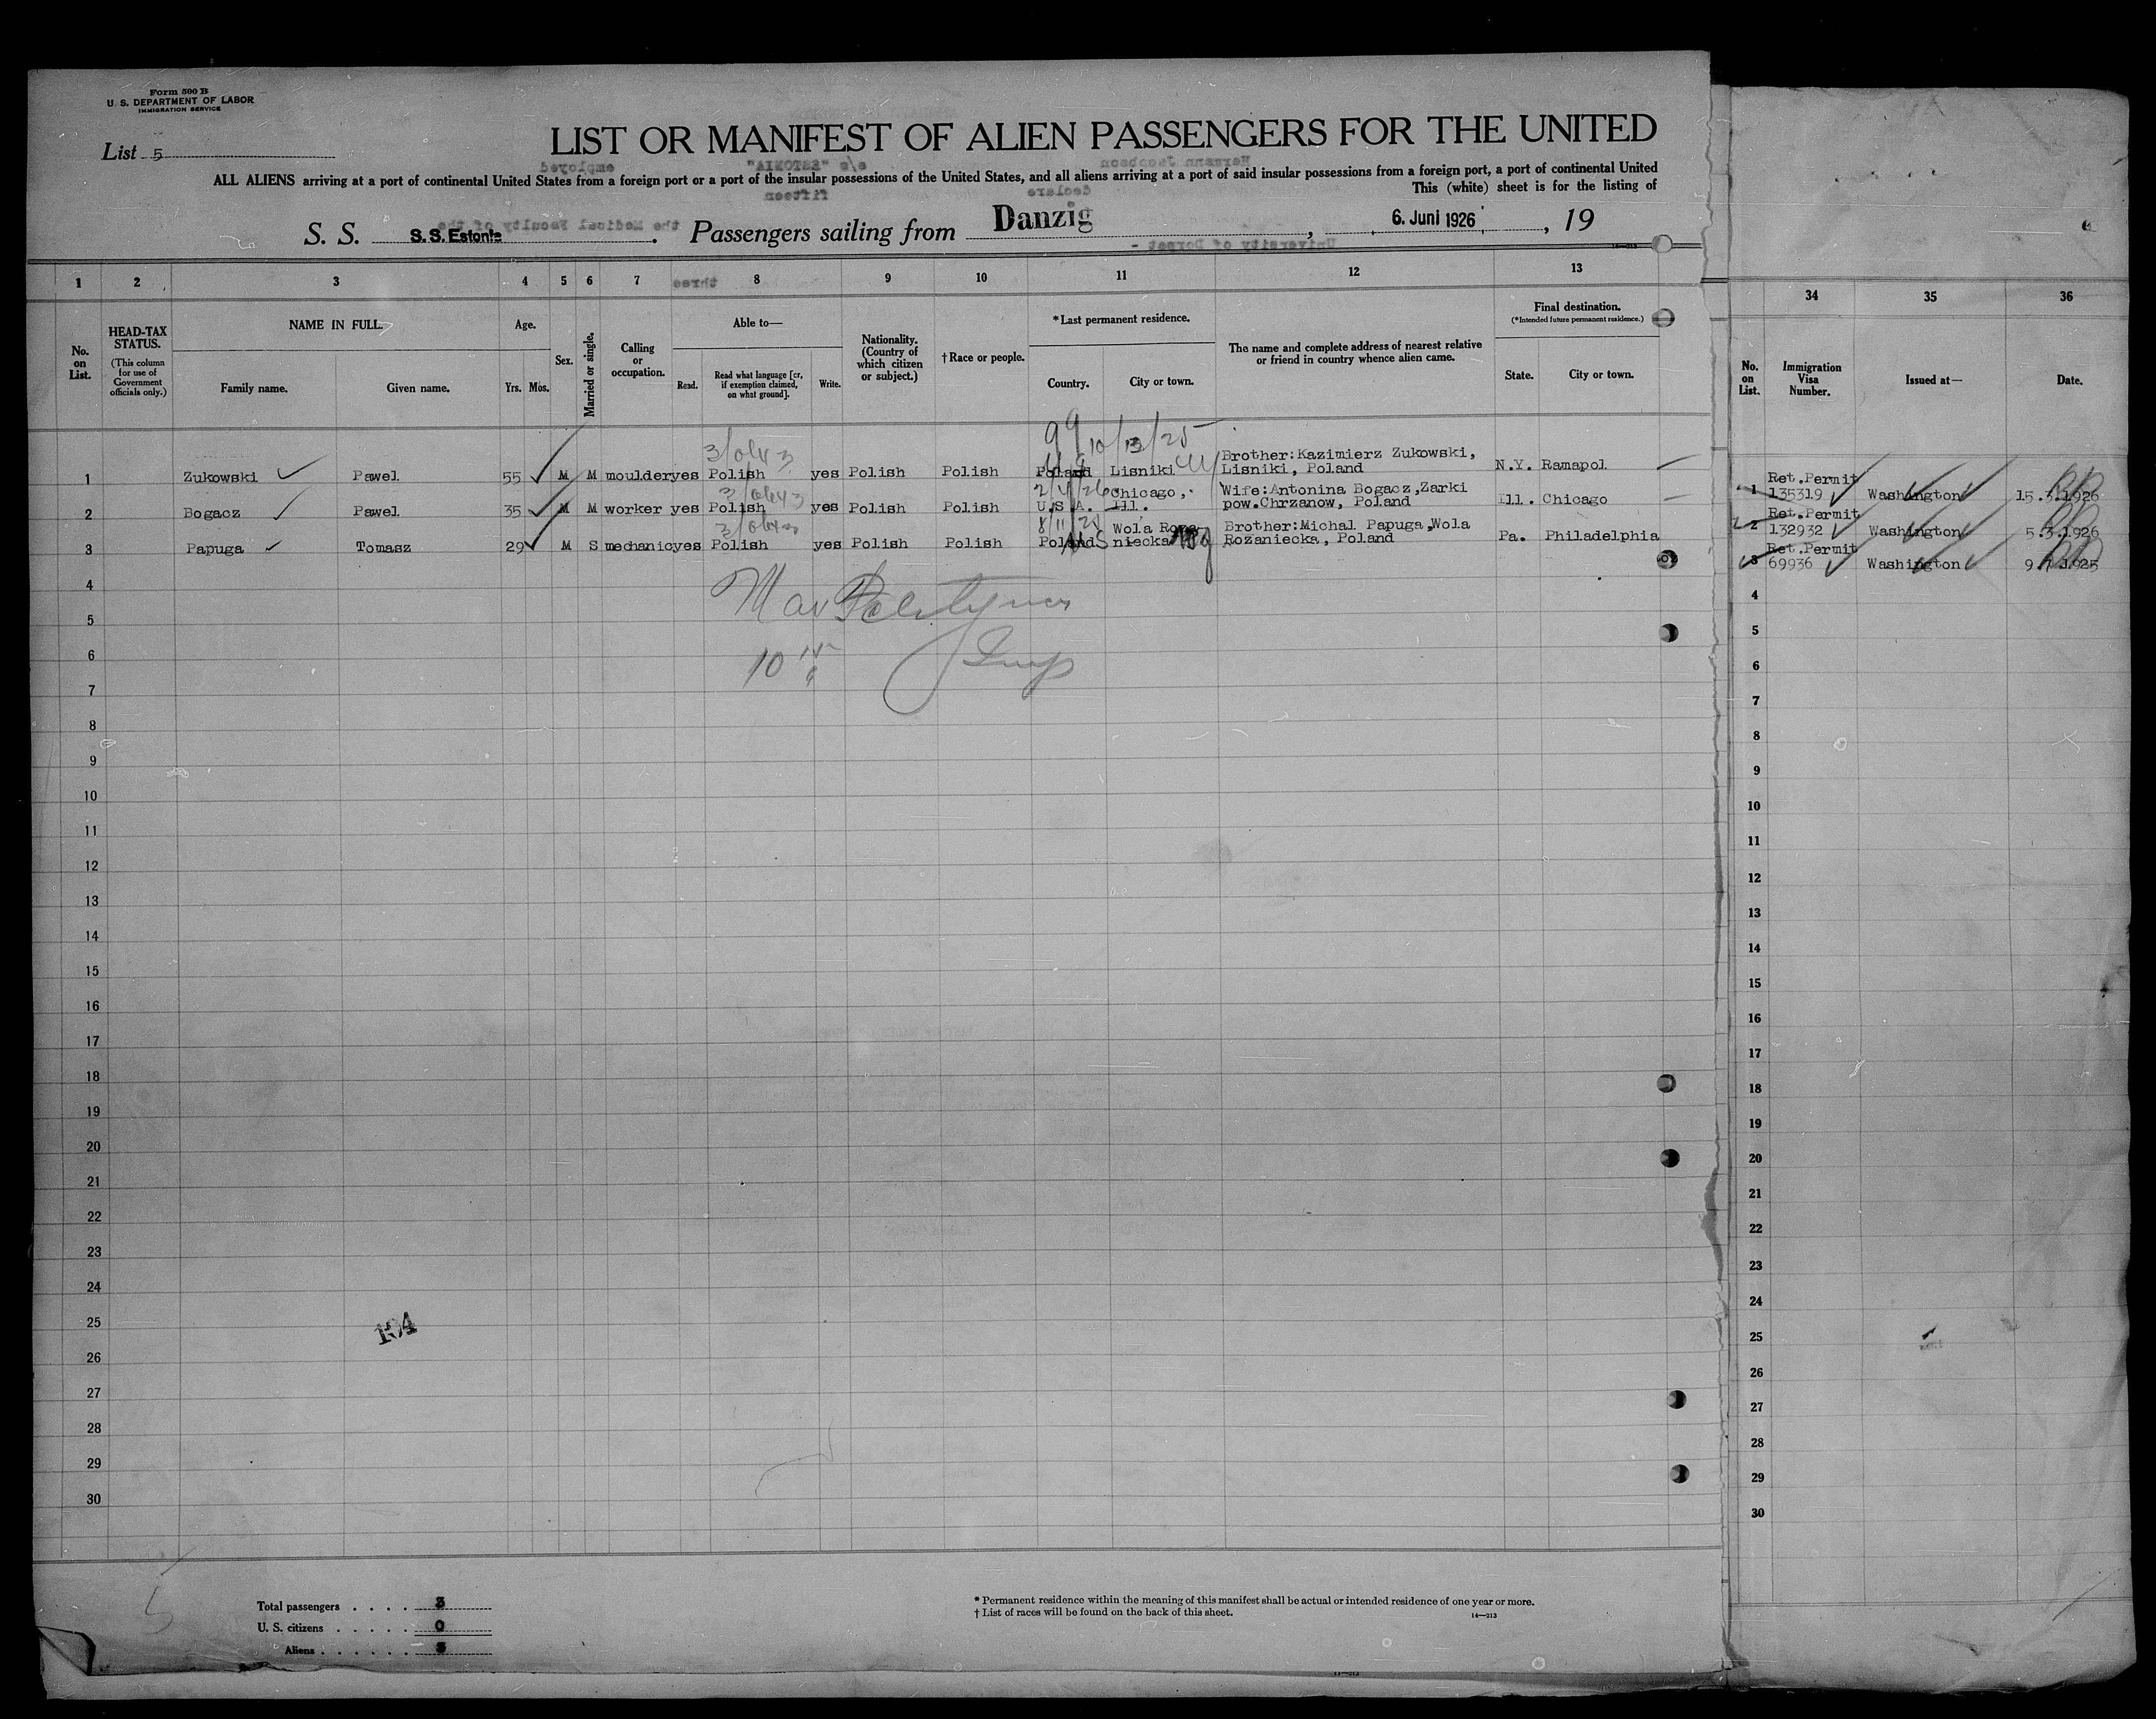 Form 500 B
U. S. DEPARTMENT OF LABOR
IMMIGRATION SERVICE
List 5
LIST OR MANIFEST OF ALIEN PASSENGERS FOR THE UNITED
ALL ALIENS arriving at a port of continental United States from a foreign port or a port of the insular possessions of the United States, and all aliens arriving at a port of said insular possessions from a foreign port, a port of continental United
This (white) sheet is for the listing of
S. S. S.S. Estonia. Passengers sailing from Danzig, 6. Juni 1926, 19
1 2 3 4 5 6 7 8 9 10 11 12 13 34 35 36
No. on List.
HEAD-TAX STATUS.
(This column for use of Government officials only.)
NAME IN FULL.
Family name. Given name.
Age.
Yrs. Mos.
Sex.
Married or single.
Calling or occupation.
Able to—
Read.
Read what language [or, if exemption claimed, on what ground].
Write.
Nationality. (Country of which citizen or subject.)
† Race or people.
* Last permanent residence.
Country. City or town.
The name and complete address of nearest relative or friend in country whence alien came.
Final destination.
(* Intended future permanent residence.)
State. City or town.
No. on List.
Immigration Visa Number.
Issued at—
Date.
99 10/13/25
1 Zukowski Pawel 55 M M moulder yes Polish yes Polish Polish Poland Lisniki Brother: Kazimierz Zukowski, Lisniki, Poland N.Y. Ramapol 1 Ret.Permit 135319 Washington 15.3.1926
2 Bogacz Pawel 35 M M worker yes Polish yes Polish Polish U.S.A. Chicago, Ill. Wife: Antonina Bogacz, Zarki pow. Chrzanow, Poland Ill. Chicago 2 Ret.Permit 132932 Washington 5.3.1926
3 Papuga Tomasz 29 M S mechanic yes Polish yes Polish Polish Poland Wola Rozaniecka Brother: Michal Papuga, Wola Rozaniecka, Poland Pa. Philadelphia 3 Ret.Permit 69936 Washington 9.7.1925
4 4
5 5
6 6
7 7
8 8
9 9
10 10
11 11
12 12
13 13
14 14
15 15
16 16
17 17
18 18
19 19
20 20
21 21
22 22
23 23
24 24
25 25
26 26
27 27
28 28
29 29
30 30
Total passengers . . . . 3
U. S. citizens . . . . . 0
Aliens . . . . . . 3
* Permanent residence within the meaning of this manifest shall be actual or intended residence of one year or more.
† List of races will be found on the back of this sheet.
14—213